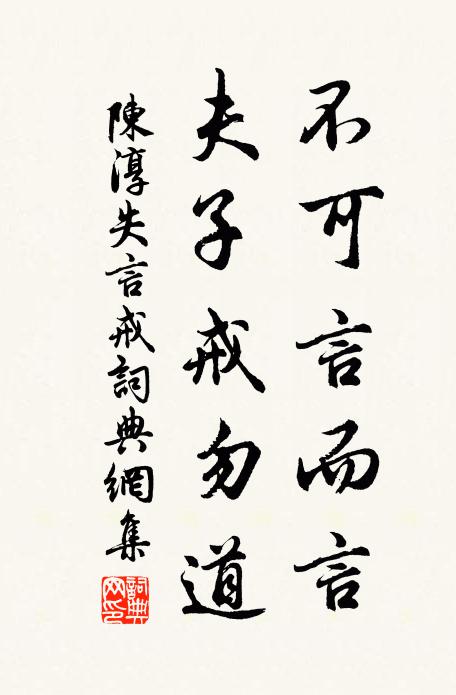 不可言而言
夫子戒勿道
陳淳失言戒詞典網集
詞典網印